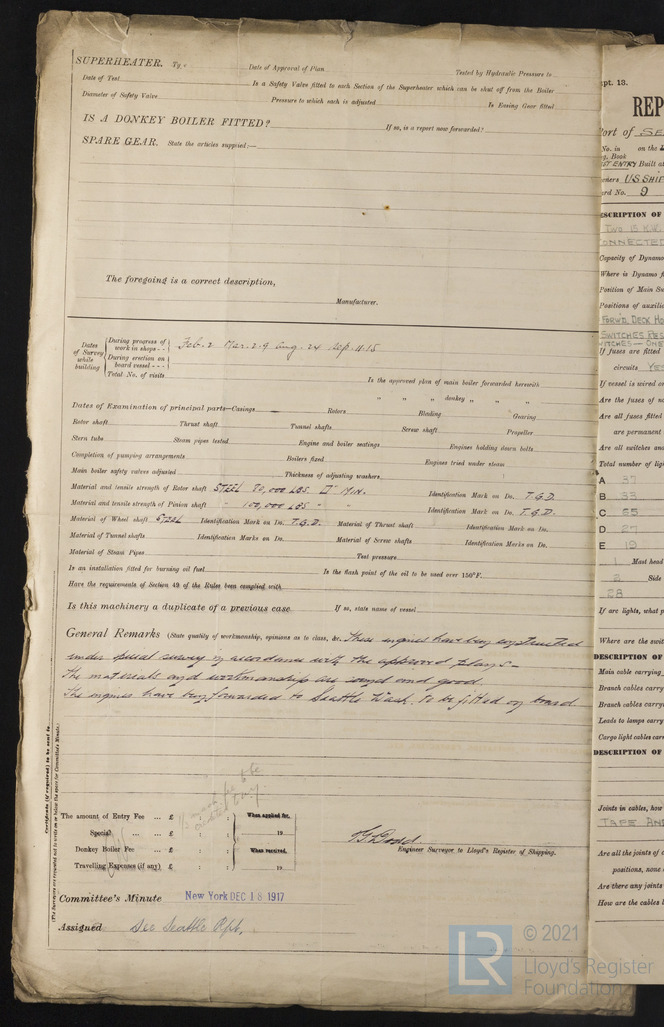 SUPERHEATER. Type Date of Approval of Plan Tested by Hydraulic Pressure to
Date of Test Is a Safety Valve fitted to each Section of the Superheater which can be shut off from the Boiler
Diameter of Safety Valve Pressure to which each is adjusted Is Easing Gear fitted
IS A DONKEY BOILER FITTED? If so, is a report now forwarded?
SPARE GEAR. State the articles supplied:—
The foregoing is a correct description,
Manufacturer.
Dates of Survey while building
During progress of work in shops - - Feb. 2 Mar. 2.9 Aug. 24 Sep. 11.15
During erection on board vessel - - -
Total No. of visits
Is the approved plan of main boiler forwarded herewith
" " " donkey " " "
Dates of Examination of principal parts—Casings Rotors Blading Gearing
Rotor shaft Thrust shaft Tunnel shafts Screw shaft Propeller
Stern tube Steam pipes tested Engine and boiler seatings Engines holding down bolts
Completion of pumping arrangements Boilers fixed Engines tried under steam
Main boiler safety valves adjusted Thickness of adjusting washers
Material and tensile strength of Rotor shaft STEEL 80,000 LBS. □" MIN. Identification Mark on Do. T.G.D.
Material and tensile strength of Pinion shaft " 100,000 LBS " " Identification Mark on Do. T.G.D.
Material of Wheel shaft STEEL Identification Mark on Do. T.G.D. Material of Thrust shaft Identification Mark on Do.
Material of Tunnel shafts Identification Marks on Do. Material of Screw shafts Identification Marks on Do.
Material of Steam Pipes Test pressure
Is an installation fitted for burning oil fuel Is the flash point of the oil to be used over 150°F.
Have the requirements of Section 49 of the Rules been complied with
Is this machinery a duplicate of a previous case If so, state name of vessel
General Remarks (State quality of workmanship, opinions as to class, &c. These engines have been constructed
under special survey in accordance with the approved plans —
The materials and workmanship are sound and good.
The engines have been forwarded to Seattle Wash. to be fitted on board
Certificate (if required) to be sent to
(The Surveyors are requested not to write on or below the space for Committee's Minute.)
The amount of Entry Fee ... £ : : When applied for,
Special ... ... £ : : 19
Donkey Boiler Fee ... £ : : When received,
Travelling Expenses (if any) £ : : 19
T.G. Dodd
Engineer Surveyor to Lloyd's Register of Shipping.
Committee's Minute New York DEC 18 1917
Assigned See Seattle Rpt.
© 2021
Lloyd's Register
Foundation
LR
pt. 13.
REP
Port of SE
No. in on the
Reg. Book
1ST ENTRY Built at
Owners US SHIP
Card No. 9
DESCRIPTION OF
TWO 15 K.W.
CONNECTED
Capacity of Dynamo
Where is Dynamo f
Position of Main Sw
Positions of auxilia
FORW'D. DECK HO
SWITCHES RES
If fuses are fitted
circuits YES
If vessel is wired on
Are the fuses of no
Are all fuses fitted
are permanent
Are all switches and
Total number of lig
A 37
B 33
C 65
D 27
E 19
1 Mast head
2 Side
28
If arc lights, what p
Where are the swit
DESCRIPTION OF
Main cable carrying
Branch cables carry
Branch cables carry
Leads to lamps carry
Cargo light cables carr
DESCRIPTION OF
Joints in cables, how
TAPE AND
Are all the joints of c
positions, none
Are there any joints
How are the cables l